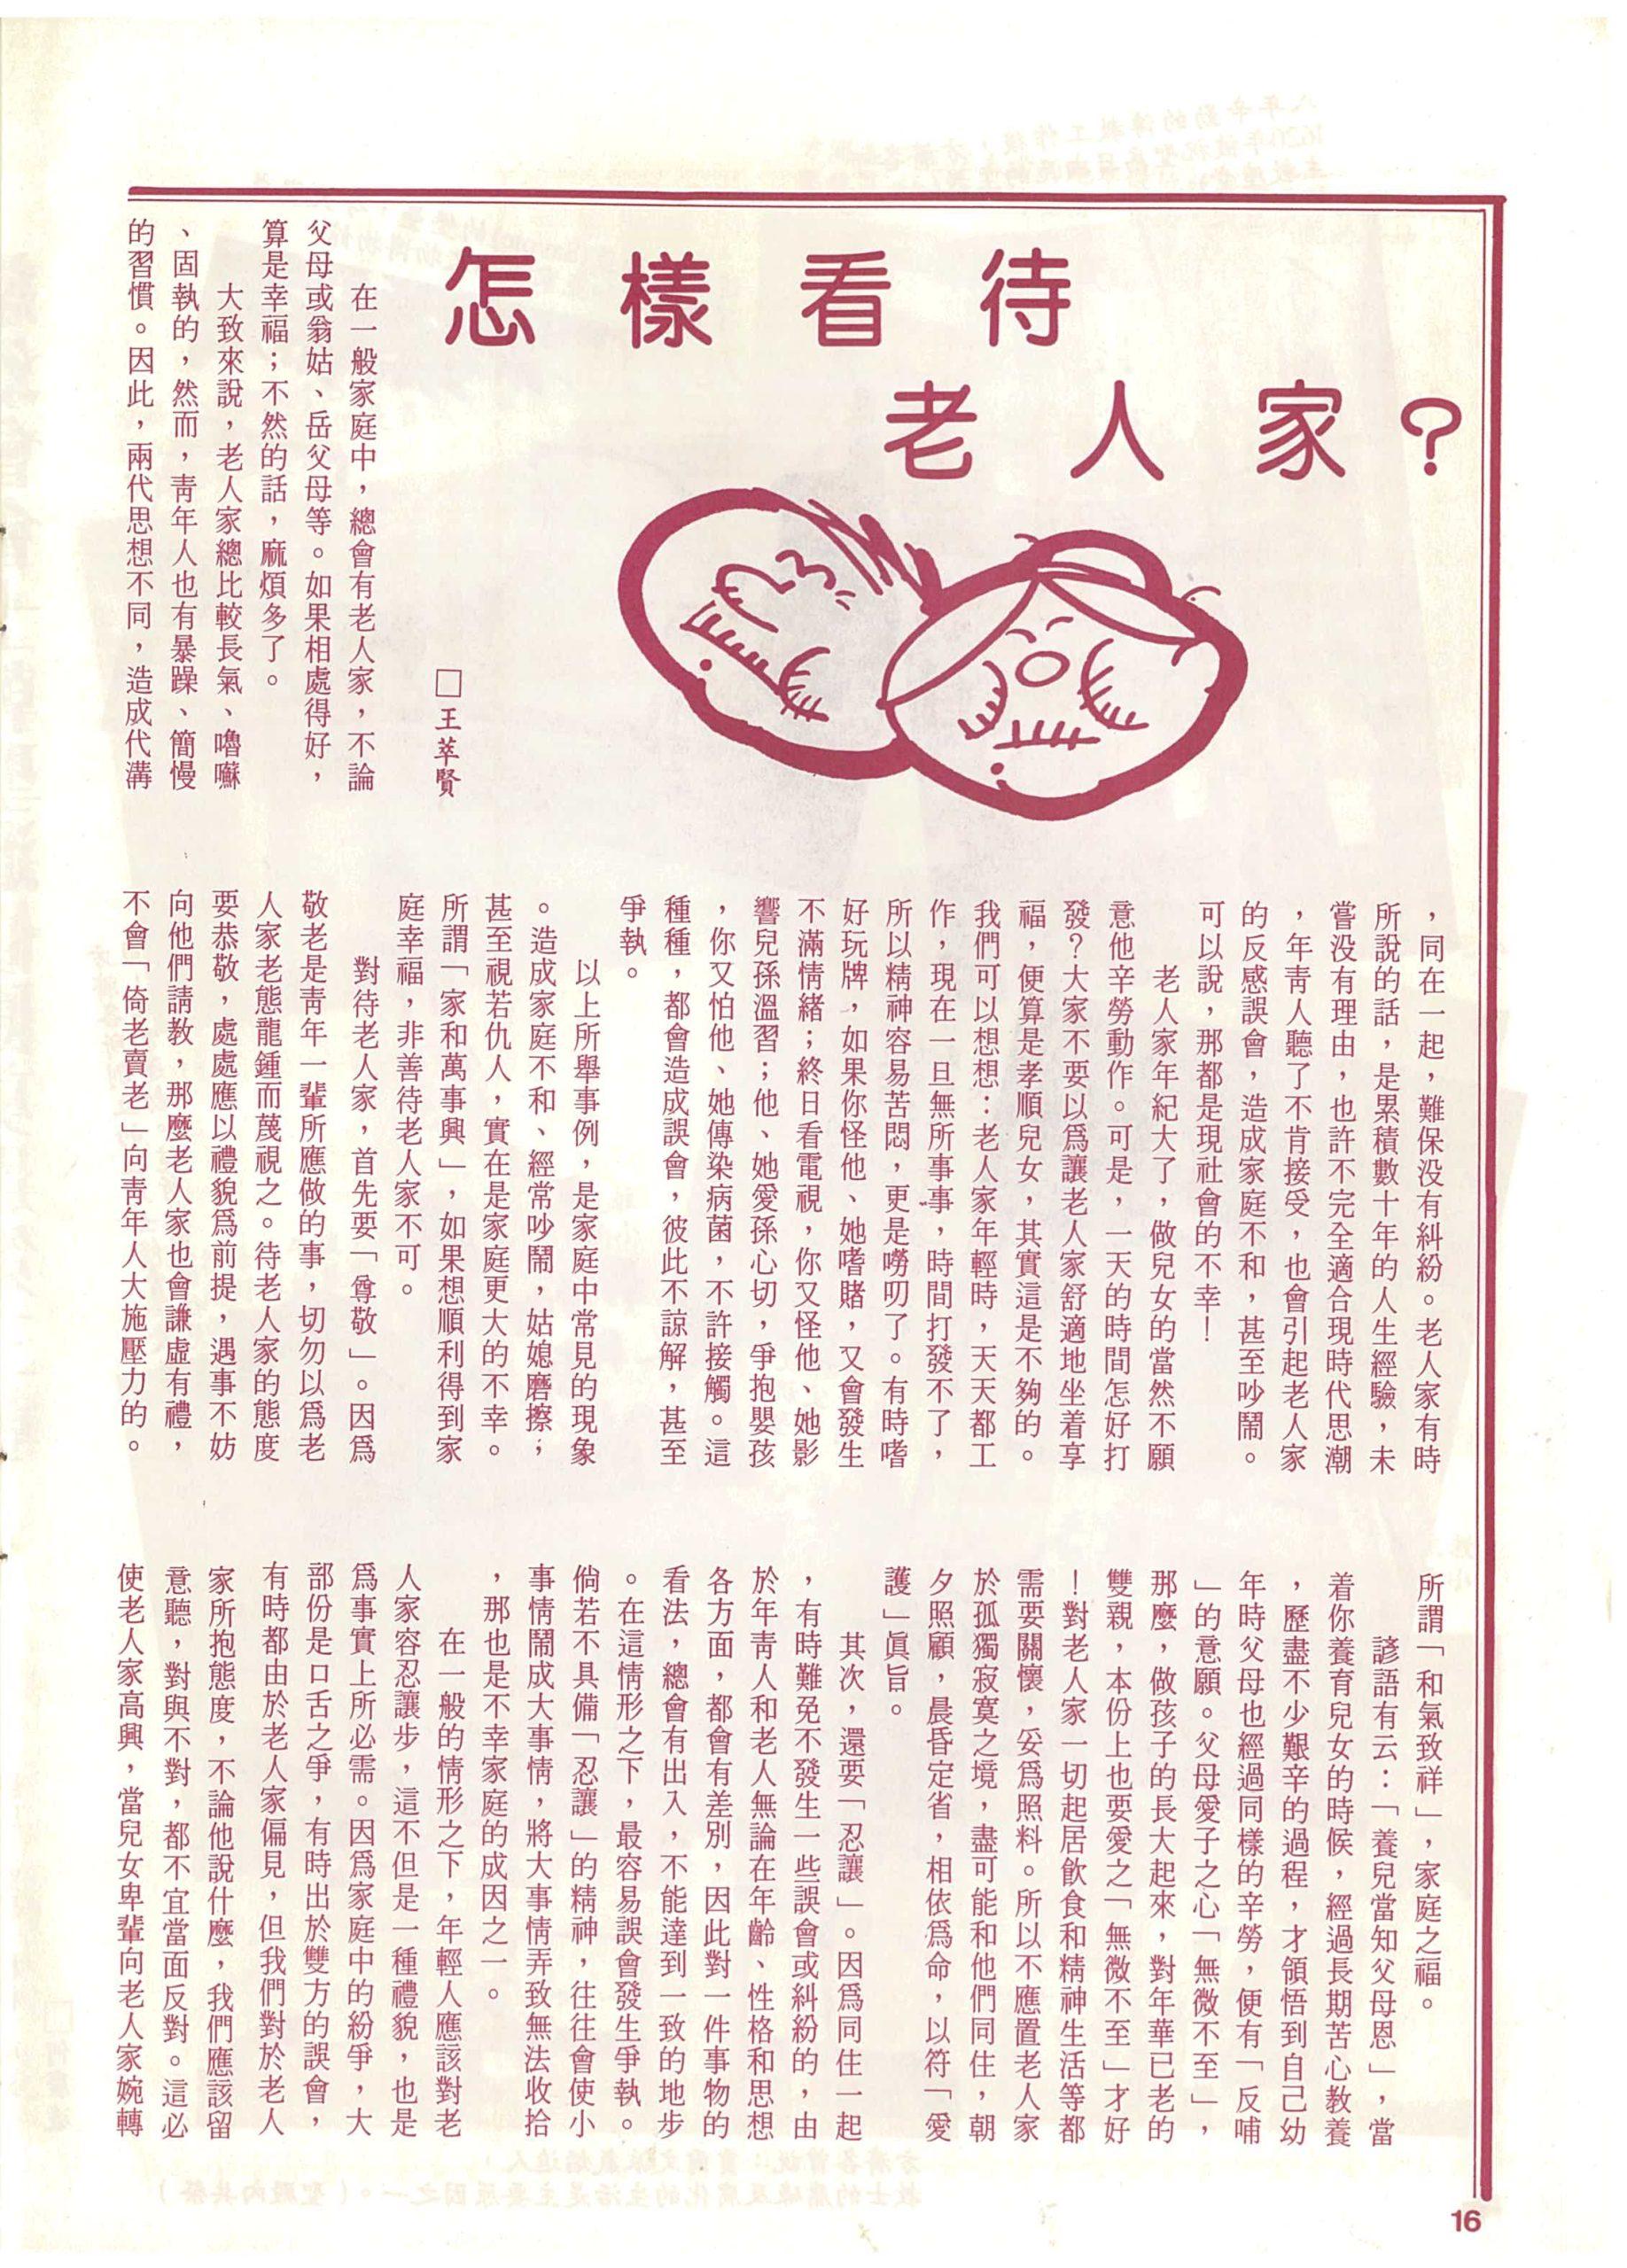 怎樣看待
老人家？
□王萃賢
在一般家庭中，總會有老人家，不論
父母或翁姑、岳父母等。如果相處得好，
算是幸福；不然的話，麻煩多了。
大致來說，老人家總比較長氣、嚕囌
、固執的，然而，靑年人也有暴躁、簡慢
的習慣。因此，兩代思想不同，造成代溝
，同在一起，難保没有糾紛。老人家有時
所說的話，是累積數十年的人生經驗，未
嘗没有理由，也許不完全適合現時代思潮
，年靑人聽了不肯接受，也會引起老人家
的反感誤會，造成家庭不和，甚至吵鬧。
可以說，那都是現社會的不幸！
老人家年紀大了，做兒女的當然不願
意他辛勞動作。可是，一天的時間怎好打
發？大家不要以爲讓老人家舒適地坐着享
福，便算是孝順兒女，其實這是不夠的。
我們可以想想：老人家年輕時，天天都工
作，現在一旦無所事事，時間打發不了，
所以精神容易苦悶，更是嘮叨了。有時嗜
好玩牌，如果你怪他、她嗜賭，又會發生
不滿情緒；終日看電視，你又怪他、她影
響兒孫溫習；他、她愛孫心切，爭抱嬰孩
，你又怕他、她傳染病菌，不許接觸。這
種種，都會造成誤會，彼此不諒解，甚至
爭執。
以上所舉事例，是家庭中常見的現象
。造成家庭不和、經常吵鬧，姑媳磨擦；
甚至視若仇人，實在是家庭更大的不幸。
所謂「家和萬事興」，如果想順利得到家
庭幸福，非善待老人家不可。
對待老人家，首先要「尊敬」。因爲
敬老是靑年一輩所應做的事，切勿以爲老
人家老態龍鍾而蔑視之。待老人家的態度
要恭敬，處處應以禮貌爲前提，遇事不妨
向他們請教，那麼老人家也會謙虛有禮，
不會「倚老賣老」向靑年人大施壓力的。
所謂「和氣致祥」，家庭之福。
諺語有云：「養兒當知父母恩」，當
着你養育兒女的時候，經過長期苦心教養
，歷盡不少艱辛的過程，才領悟到自己幼
年時父母也經過同樣的辛勞，便有「反哺
」的意願。父母愛子之心「無微不至」，
那麼，做孩子的長大起來，對年華已老的
雙親，本份上也要愛之「無微不至」才好
！對老人家一切起居飲食和精神生活等都
需要關懷，妥爲照料。所以不應置老人家
於孤獨寂寞之境，盡可能和他們同住，朝
夕照顧，晨昏定省，相依爲命，以符「愛
護」眞旨。
其次，還要「忍讓」。因爲同住一起
，有時難免不發生一些誤會或糾紛的，由
於年靑人和老人無論在年齡、性格和思想
各方面，都會有差別，因此對一件事物的
看法，總會有出入，不能達到一致的地步
。在這情形之下，最容易誤會發生爭執。
倘若不具備「忍讓」的精神，往往會使小
事情鬧成大事情，將大事情弄致無法收拾
，那也是不幸家庭的成因之一。
在一般的情形之下，年輕人應該對老
人家容忍讓步，這不但是一種禮貌，也是
爲事實上所必需。因爲家庭中的紛爭，大
部份是口舌之爭，有時出於雙方的誤會，
有時都由於老人家偏見，但我們對於老人
家所抱態度，不論他說什麼，我們應該留
意聽，對與不對，都不宜當面反對。這必
使老人家高興，當兒女卑輩向老人家婉轉
16